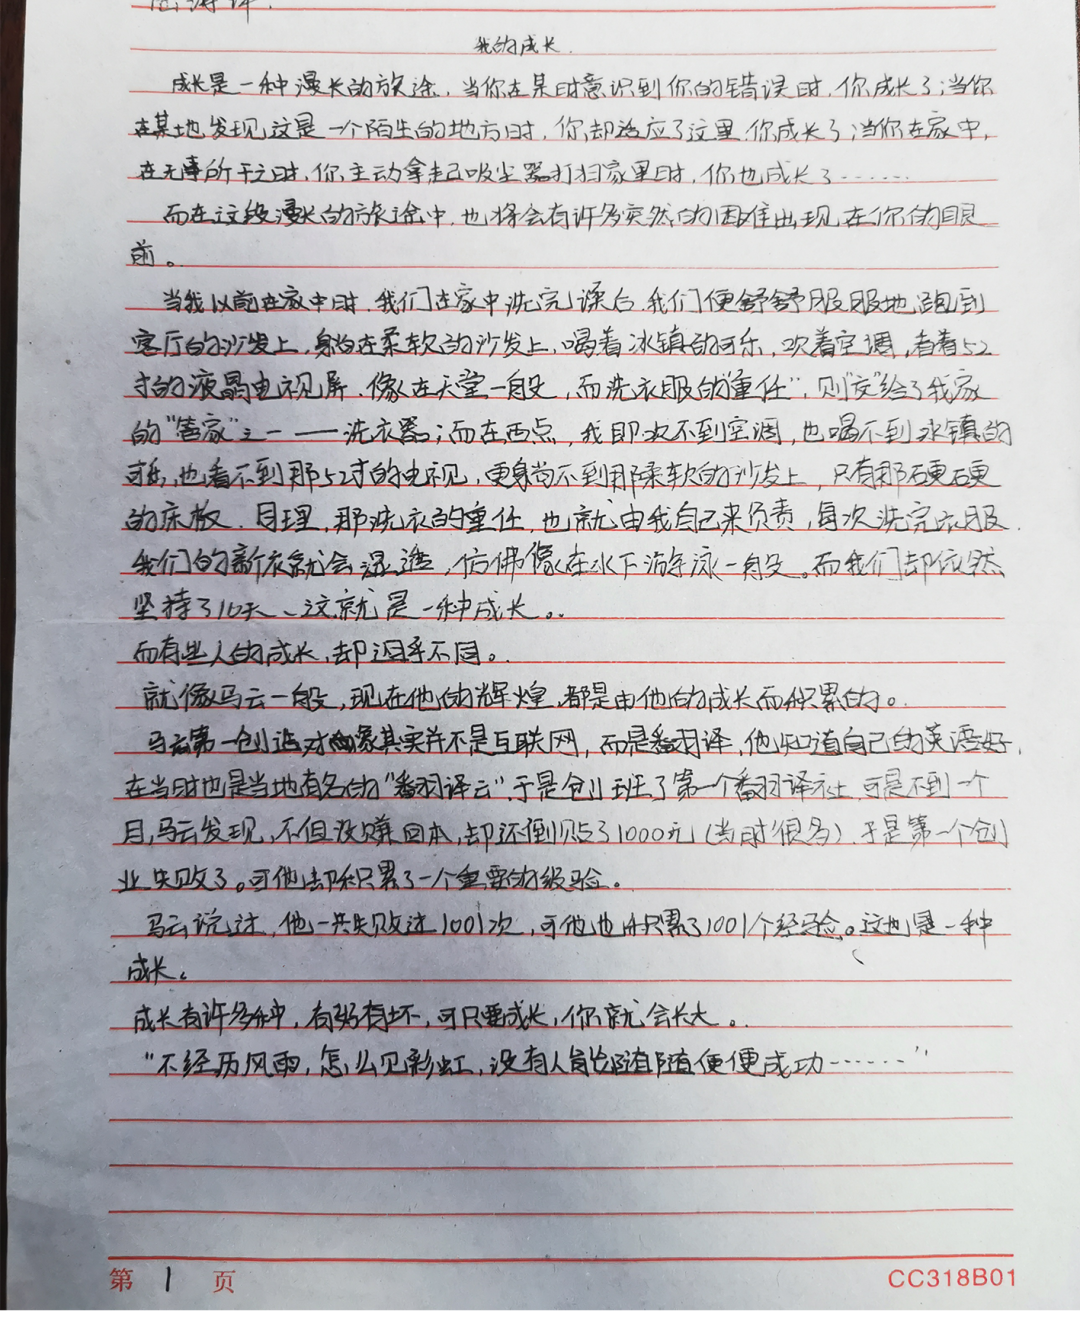 我的成长.
成长是一种漫长的旅途，当你在某时意识到你的错误时，你成长了；当你
在某地发现这是一个陌生的地方时，你却适应了这里，你成长了；当你在家中，
在无事所干之时，你主动拿起吸尘器打扫家里时，你也成长了……
而在这段漫长的旅途中，也将会有许多突然的困难出现在你的眼
前。
当我以前在家中时，我们在家中洗完澡后，我们便舒舒服服地跑到
客厅的沙发上，躺在柔软的沙发上，喝着冰镇的可乐，吹着空调，看着52
寸的液晶电视屏，像在天堂一般，而洗衣服的"重任"，则"交"给了我家
的"管家"之一——洗衣器；而在西点，我即吹不到空调，也喝不到冰镇的
可乐，也看不到那52寸的电视，更躺不到那柔软的沙发上，只有那硬硬
的床板，自理，那洗衣的重任，也就由我自己来负责，每次洗完衣服，
我们的新衣就会湿透，仿佛像在水下游泳一般。而我们却依然
坚持了10天、这就是一种成长。.
而有些人的成长，却迥乎不同。
就像马云一般，现在他的辉煌，都是由他的成长而积累的。
马云第一创造对象其实并不是互联网，而是番羽译，他知道自己的英语好，
在当时也是当地有名的"番羽译云"于是创班了第一个番羽译社，可是不到一个
月，马云发现，不但没赚回本，却还倒贴了1000元（当时很多）.于是第一个创
业失败了。可他却积累了一个重要的经验。
马云说过，他一共失败过1001次，可他也积累了1001个经验。这也是一种
成长。
成长有许多种，有弱有坏，可只要成长，你就会长大。
"不经历风雨，怎么见彩虹，没有人能随随便便成功……"
第 1 页
CC318B01